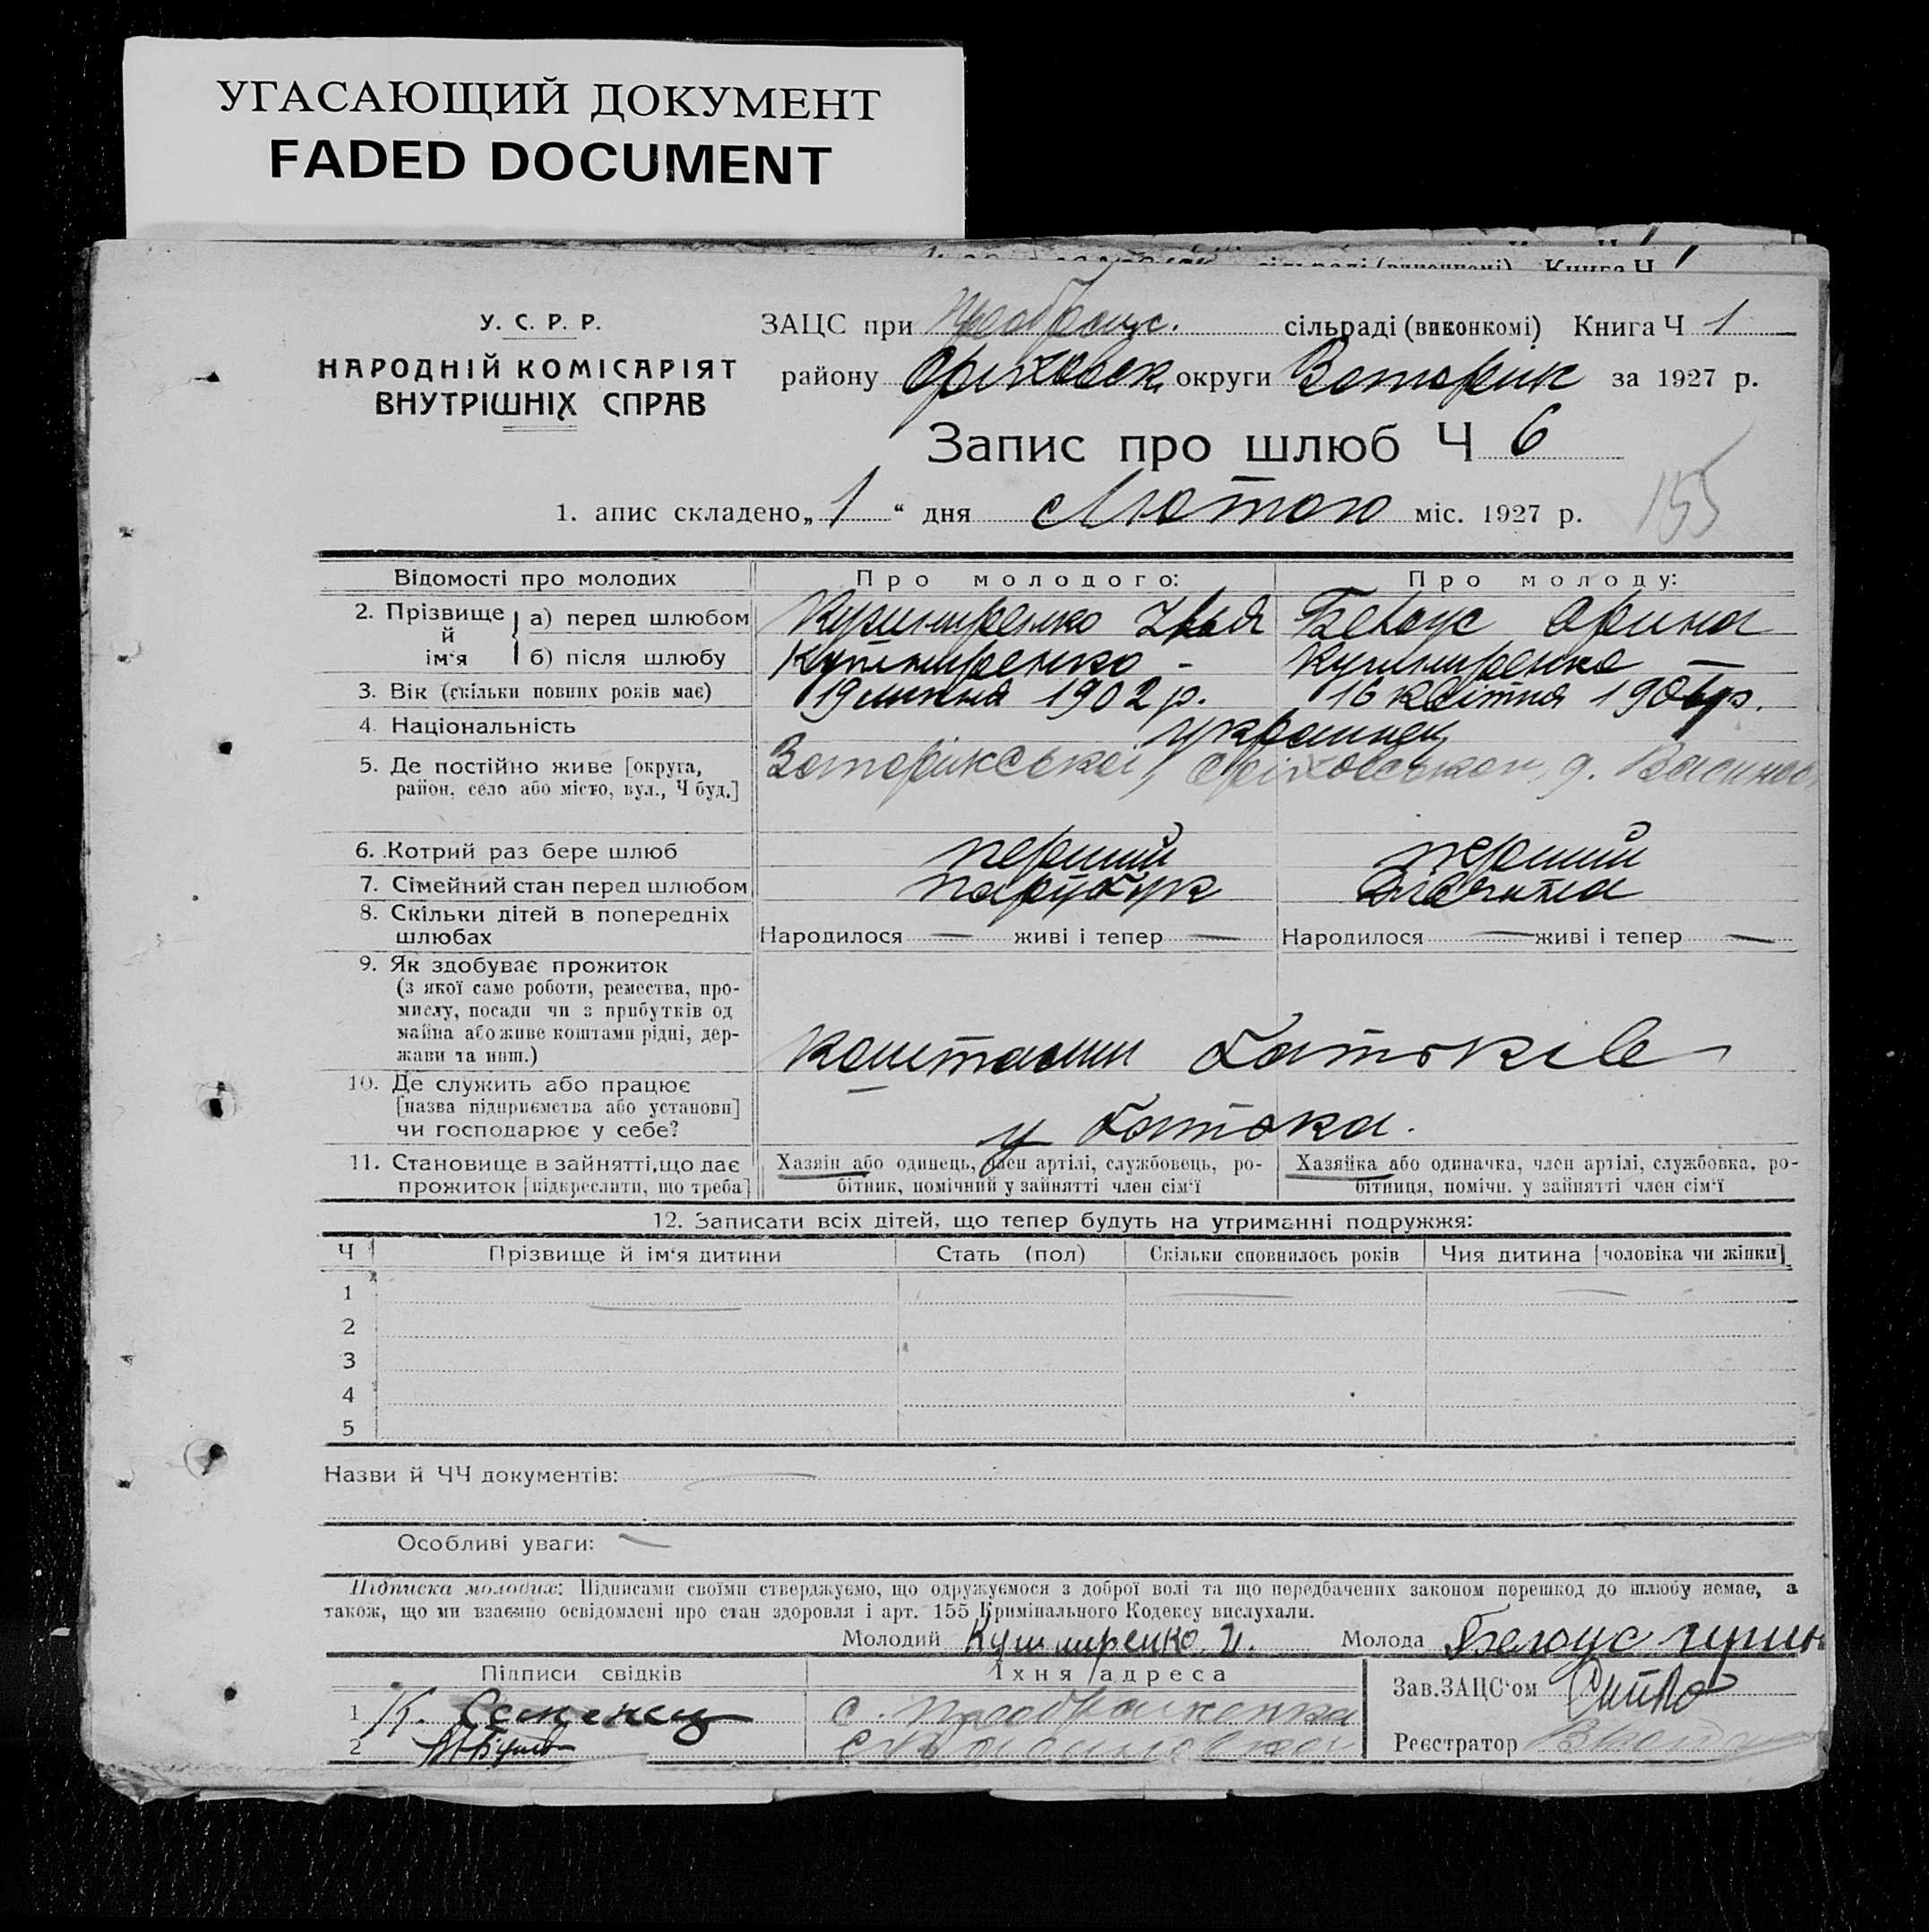 УГАСАЮЩИЙ ДОКУМЕНТ
FADED DOCUMENT
У. С. Р. Р.
НАРОДНІЙ КОМІСАРІЯТ
ВНУТРІШНІХ СПРАВ
ЗАЦС при Преображ. сільраді (виконкомі) Книга Ч 1
району Оріховськ округи Запоріж за 1927 р.
Запис про шлюб Ч 6
155
1. апис складено „1“ дня Лютого міс. 1927 р.
Відомості про молодих Про молодого: Про молоду:
2. Прізвище й ім‘я
а) перед шлюбом Кушниренко Ілья Белоус Орина
б) після шлюбу Кушниренко - Кушниренко —
3. Вік (скільки повних років має) 19 липня 1902 р. 16 квітня 1906 р.
4. Національність українці
5. Де постійно живе [округа, Запоріжської, Оріховського, д.
район, село або місто, вул., Ч буд.]
6. Котрий раз бере шлюб перший перший
7. Сімейний стан перед шлюбом парубок дівчина
8. Скільки дітей в попередніх
шлюбах Народилося — живі і тепер — Народилося — живі і тепер —
9. Як здобуває прожиток
(з якої саме роботи, ремества, про-
мислу, посади чи з прибутків од
майна або живе коштами рідні, дер-
жави та инш.) коштами батьків
10. Де служить або працює
[назва підприємства або установи]
чи господарює у себе? у батька.
11. Становище в зайнятті, що дає Хазяїн або одинець, член артілі, службовець, ро- Хазяйка або одиначка, член артілі, службовка, ро-
прожиток [підкреслити, що треба] бітник, помічний у зайнятті член сім‘ї бітниця, помічн. у зайнятті член сім‘ї
12. Записати всіх дітей, що тепер будуть на утриманні подружжя:
Ч Прізвище й ім‘я дитини Стать (пол) Скільки сповнилось років Чия дитина [чоловіка чи жінки]
1
2
3
4
5
Назви й ЧЧ документів:
Особливі уваги: —
Підписка молодих: Підписами своїми стверджуємо, що одружуємося з доброї волі та що передбачених законом перешкод до шлюбу немає, а
також, що ми взаємно освідомлені про стан здоровля і арт. 155 Кримінального Кодексу вислухали.
Молодий Кушниренко. И. Молода Белоус
Підписи свідків Їхня адреса Зав.ЗАЦС‘ом
1 К. Семенец с. Преображенка
2 Реєстратор